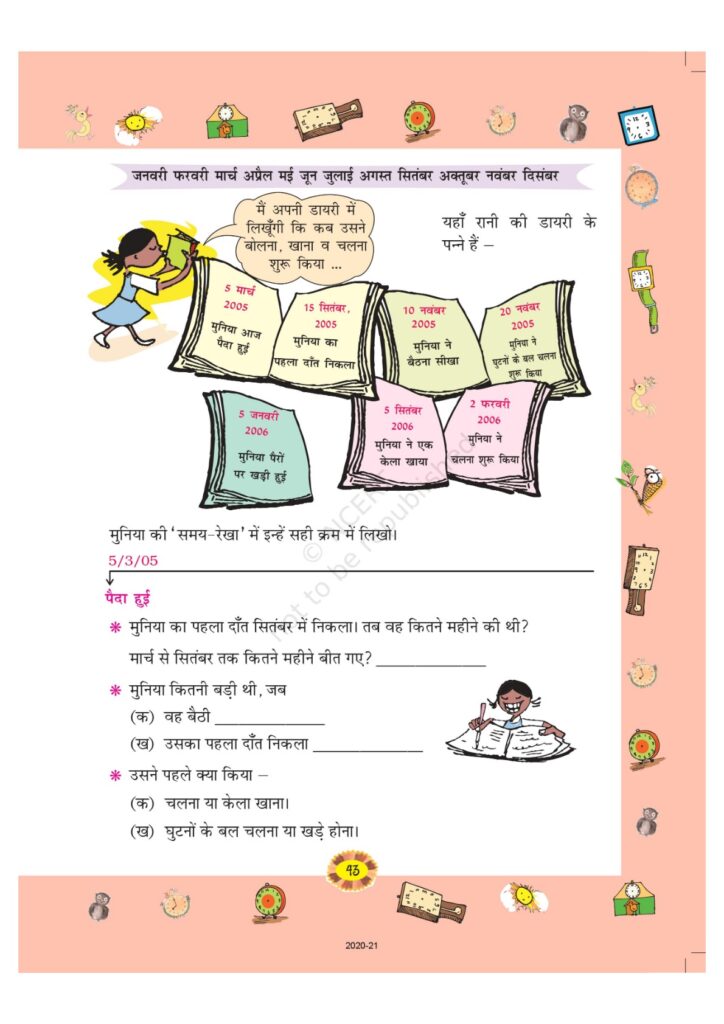 जनवरी फरवरी मार्च अप्रैल मई जून जुलाई अगस्त सितंबर अक्तूबर नवंबर दिसंबर
मैं अपनी डायरी में
लिखूँगी कि कब उसने
बोलना, खाना व चलना
शुरू किया ...
यहाँ रानी की डायरी के
पन्ने हैं –
5 मार्च
2005
मुनिया आज
पैदा हुई
15 सितंबर,
2005
मुनिया का
पहला दाँत निकला
10 नवंबर
2005
मुनिया ने
बैठना सीखा
20 नवंबर
2005
मुनिया ने
घुटनों के बल चलना
शुरू किया
5 जनवरी
2006
मुनिया पैरों
पर खड़ी हुई
5 सितंबर
2006
मुनिया ने एक
केला खाया
2 फरवरी
2006
मुनिया ने
चलना शुरू किया
मुनिया की ‘समय-रेखा’ में इन्हें सही क्रम में लिखो।
5/3/05
पैदा हुई
मुनिया का पहला दाँत सितंबर में निकला। तब वह कितने महीने की थी?
मार्च से सितंबर तक कितने महीने बीत गए? ____________
मुनिया कितनी बड़ी थी, जब
(क) वह बैठी ____________
(ख) उसका पहला दाँत निकला ____________
उसने पहले क्या किया –
(क) चलना या केला खाना।
(ख) घुटनों के बल चलना या खड़े होना।
93
2020-21
© NCERT
not to be republished